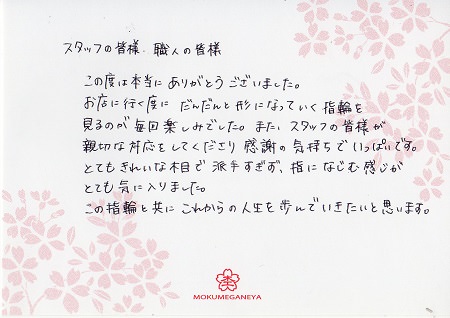 スタッフの皆様、職人の皆様
この度は本当にありがとうございました。
お店に行く度に だんだんと形になっていく指輪を
見るのが毎回楽しみでした。また、スタッフの皆様が
親切な対応をしてくださり感謝の気持ちでいっぱいです。
とてもきれいな木目で派手すぎず、指になじむ感じが
とても気に入りました。
この指輪と共にこれからの人生を歩んでいきたいと思います。
MOKUMEGANEYA